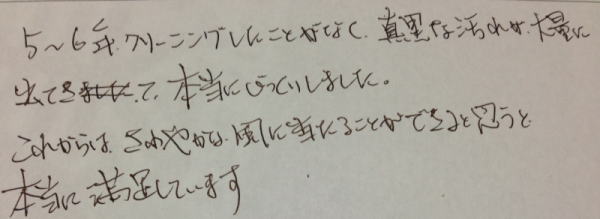 5～6年、クリーニングしたことがなく、真黒な汚れが、大量に
出てきて、本当にびっくりしました。
これからは、さわやかな風に当たることができると思うと
本当に満足しています